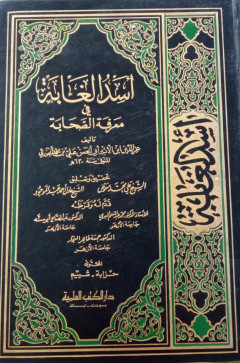 أسد الغابة
في
معرفة الصحابة
تأليف
عز الدين ابن الأثير أبي الحسن علي بن محمد الجزري
المتوفى سنة ٦٣٠ هـ
تحقيق وتعليق
الشيخ علي محمد معوض الشيخ عادل أحمد عبد الموجود
قدم له وقرظه
الأستاذ الدكتور محمد عبد المنعم البري الدكتور عبد الفتاح أبو سنة
جامعة الأزهر جامعة الأزهر
الدكتور جمعة طاهر النجار
جامعة الأزهر
المحتوى
خزابة - شييم
دار الكتب العلمية
بيروت - لبنان
أسد الغابة